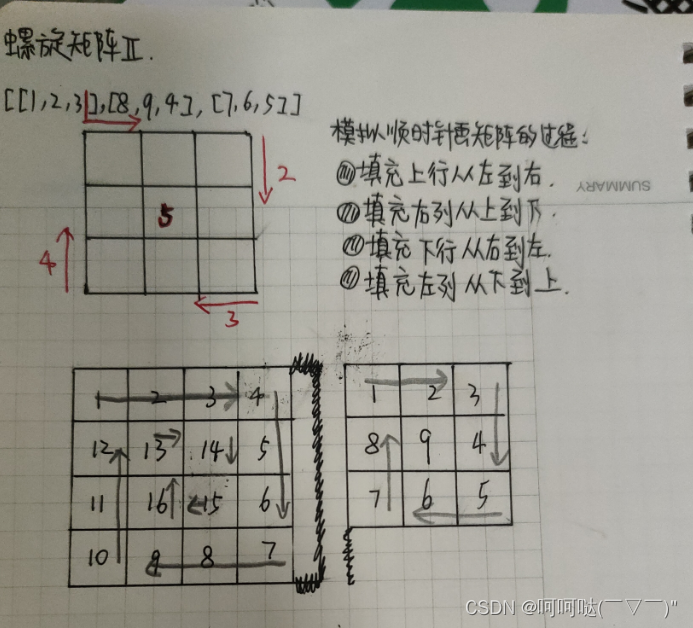 螺旋矩阵II.
[[1,2,3],[8,9,4],[7,6,5]]
模拟顺时针画矩阵的过程:
填充上行从左到右.
填充右列从上到下.
填充下行从右到左.
填充左列从下到上.
SUMMARY
2
5
4
3
1 2 3 4
12 13 14 5
11 16 15 6
10 9 8 7
1 2 3
8 9 4
7 6 5
CSDN @呵呵哒(￣▽￣)"